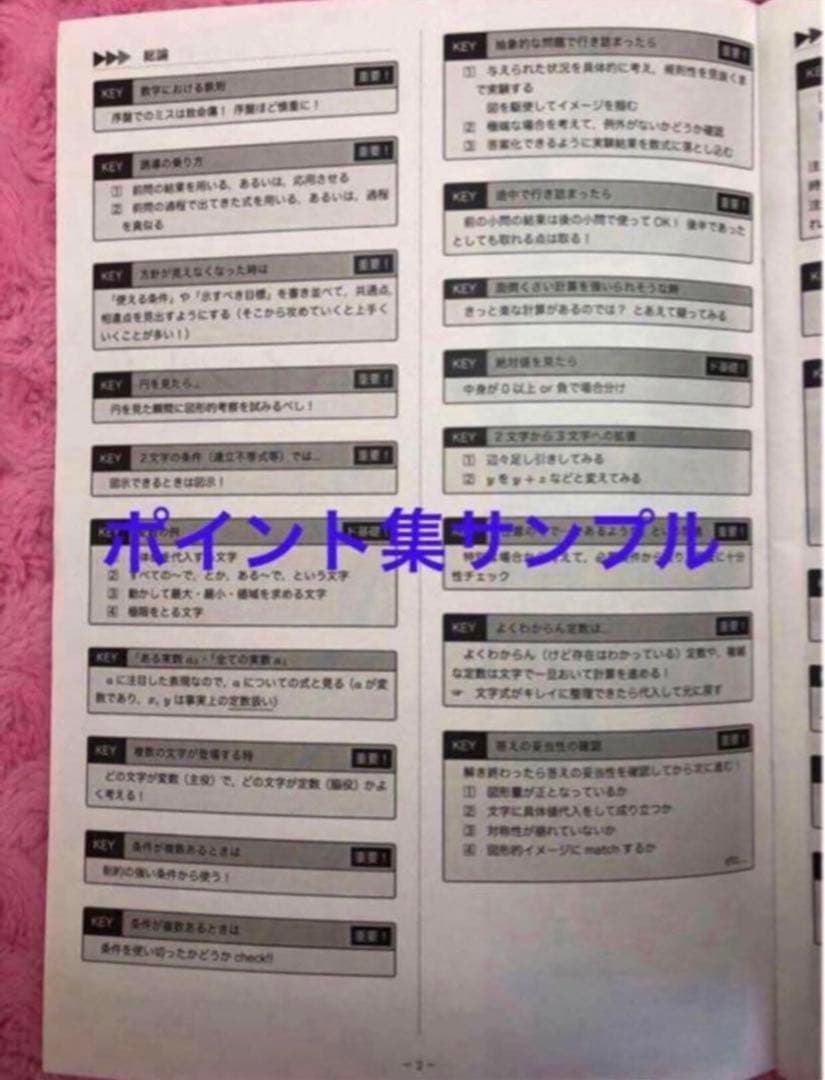 ▶▶▶ 総論
KEY 数学における鉄則 重要！
序盤でのミスは致命傷！ 序盤ほど慎重に！
KEY 誘導の乗り方 重要！
① 前問の結果を用いる、あるいは、応用させる
② 前問の過程で出てきた式を用いる、あるいは、過程
を真似る
KEY 方針が見えなくなった時は 重要！
「使える条件」や「示すべき目標」を書き並べて、共通点、
相違点を見出すようにする（そこから攻めていくと上手く
いくことが多い！）
KEY 円を見たら… 重要！
円を見た瞬間に図形的考察を試みるべし！
KEY 2文字の条件（連立不等式等）では… 重要！
図示できるときは図示！
の例 基礎！
を代入する文字
② すべての〜で、とか、ある〜で、という文字
③ 動かして最大・最小・値域を求める文字
④ 極限をとる文字
KEY 「ある実数 a」・「全ての実数 a」
a に注目した表現なので、a についての式と見る（a が変
数であり、x, y は事実上の定数扱い）
KEY 複数の文字が登場する時 重要！
どの文字が変数（主役）で、どの文字が定数（脇役）かよ
く考える！
KEY 条件が複数あるときは 重要！
制約の強い条件から使う！
KEY 条件が複数あるときは 重要！
条件を使い切ったかどうか check!!
KEY 抽象的な問題で行き詰まったら 重要！
① 与えられた状況を具体的に考え、規則性を見抜くま
で実験する
図を駆使してイメージを掴む
② 極端な場合を考えて、例外がないかどうか確認
③ 答案化できるように実験結果を数式に落とし込む
KEY 途中で行き詰まったら 重要！
前の小問の結果は後の小問で使って OK！ 後半であった
としても取れる点は取る！
KEY 面倒くさい計算を強いられそうな時
きっと楽な計算があるのでは？ とあえて疑ってみる
KEY 絶対値を見たら ド基礎！
中身が 0 以上 or 負で場合分け
KEY 2文字から3文字への拡張
① 辺々足し引きしてみる
② y を y + z などと変えてみる
ポイント集サンプル
重要！
性チェック
KEY よくわからん定数は… 重要！
よくわからん（けど存在はわかっている）定数や、複雑
な定数は文字で一旦おいて計算を進める！
☞ 文字式がキレイに整理できたら代入して元に戻す
KEY 答えの妥当性の確認 重要！
解き終わったら答えの妥当性を確認してから次に進む！
① 図形量が正となっているか
② 文字に具体値代入をして成り立つか
③ 対称性が崩れていないか
④ 図形的イメージに match するか
etc...
− 2 −